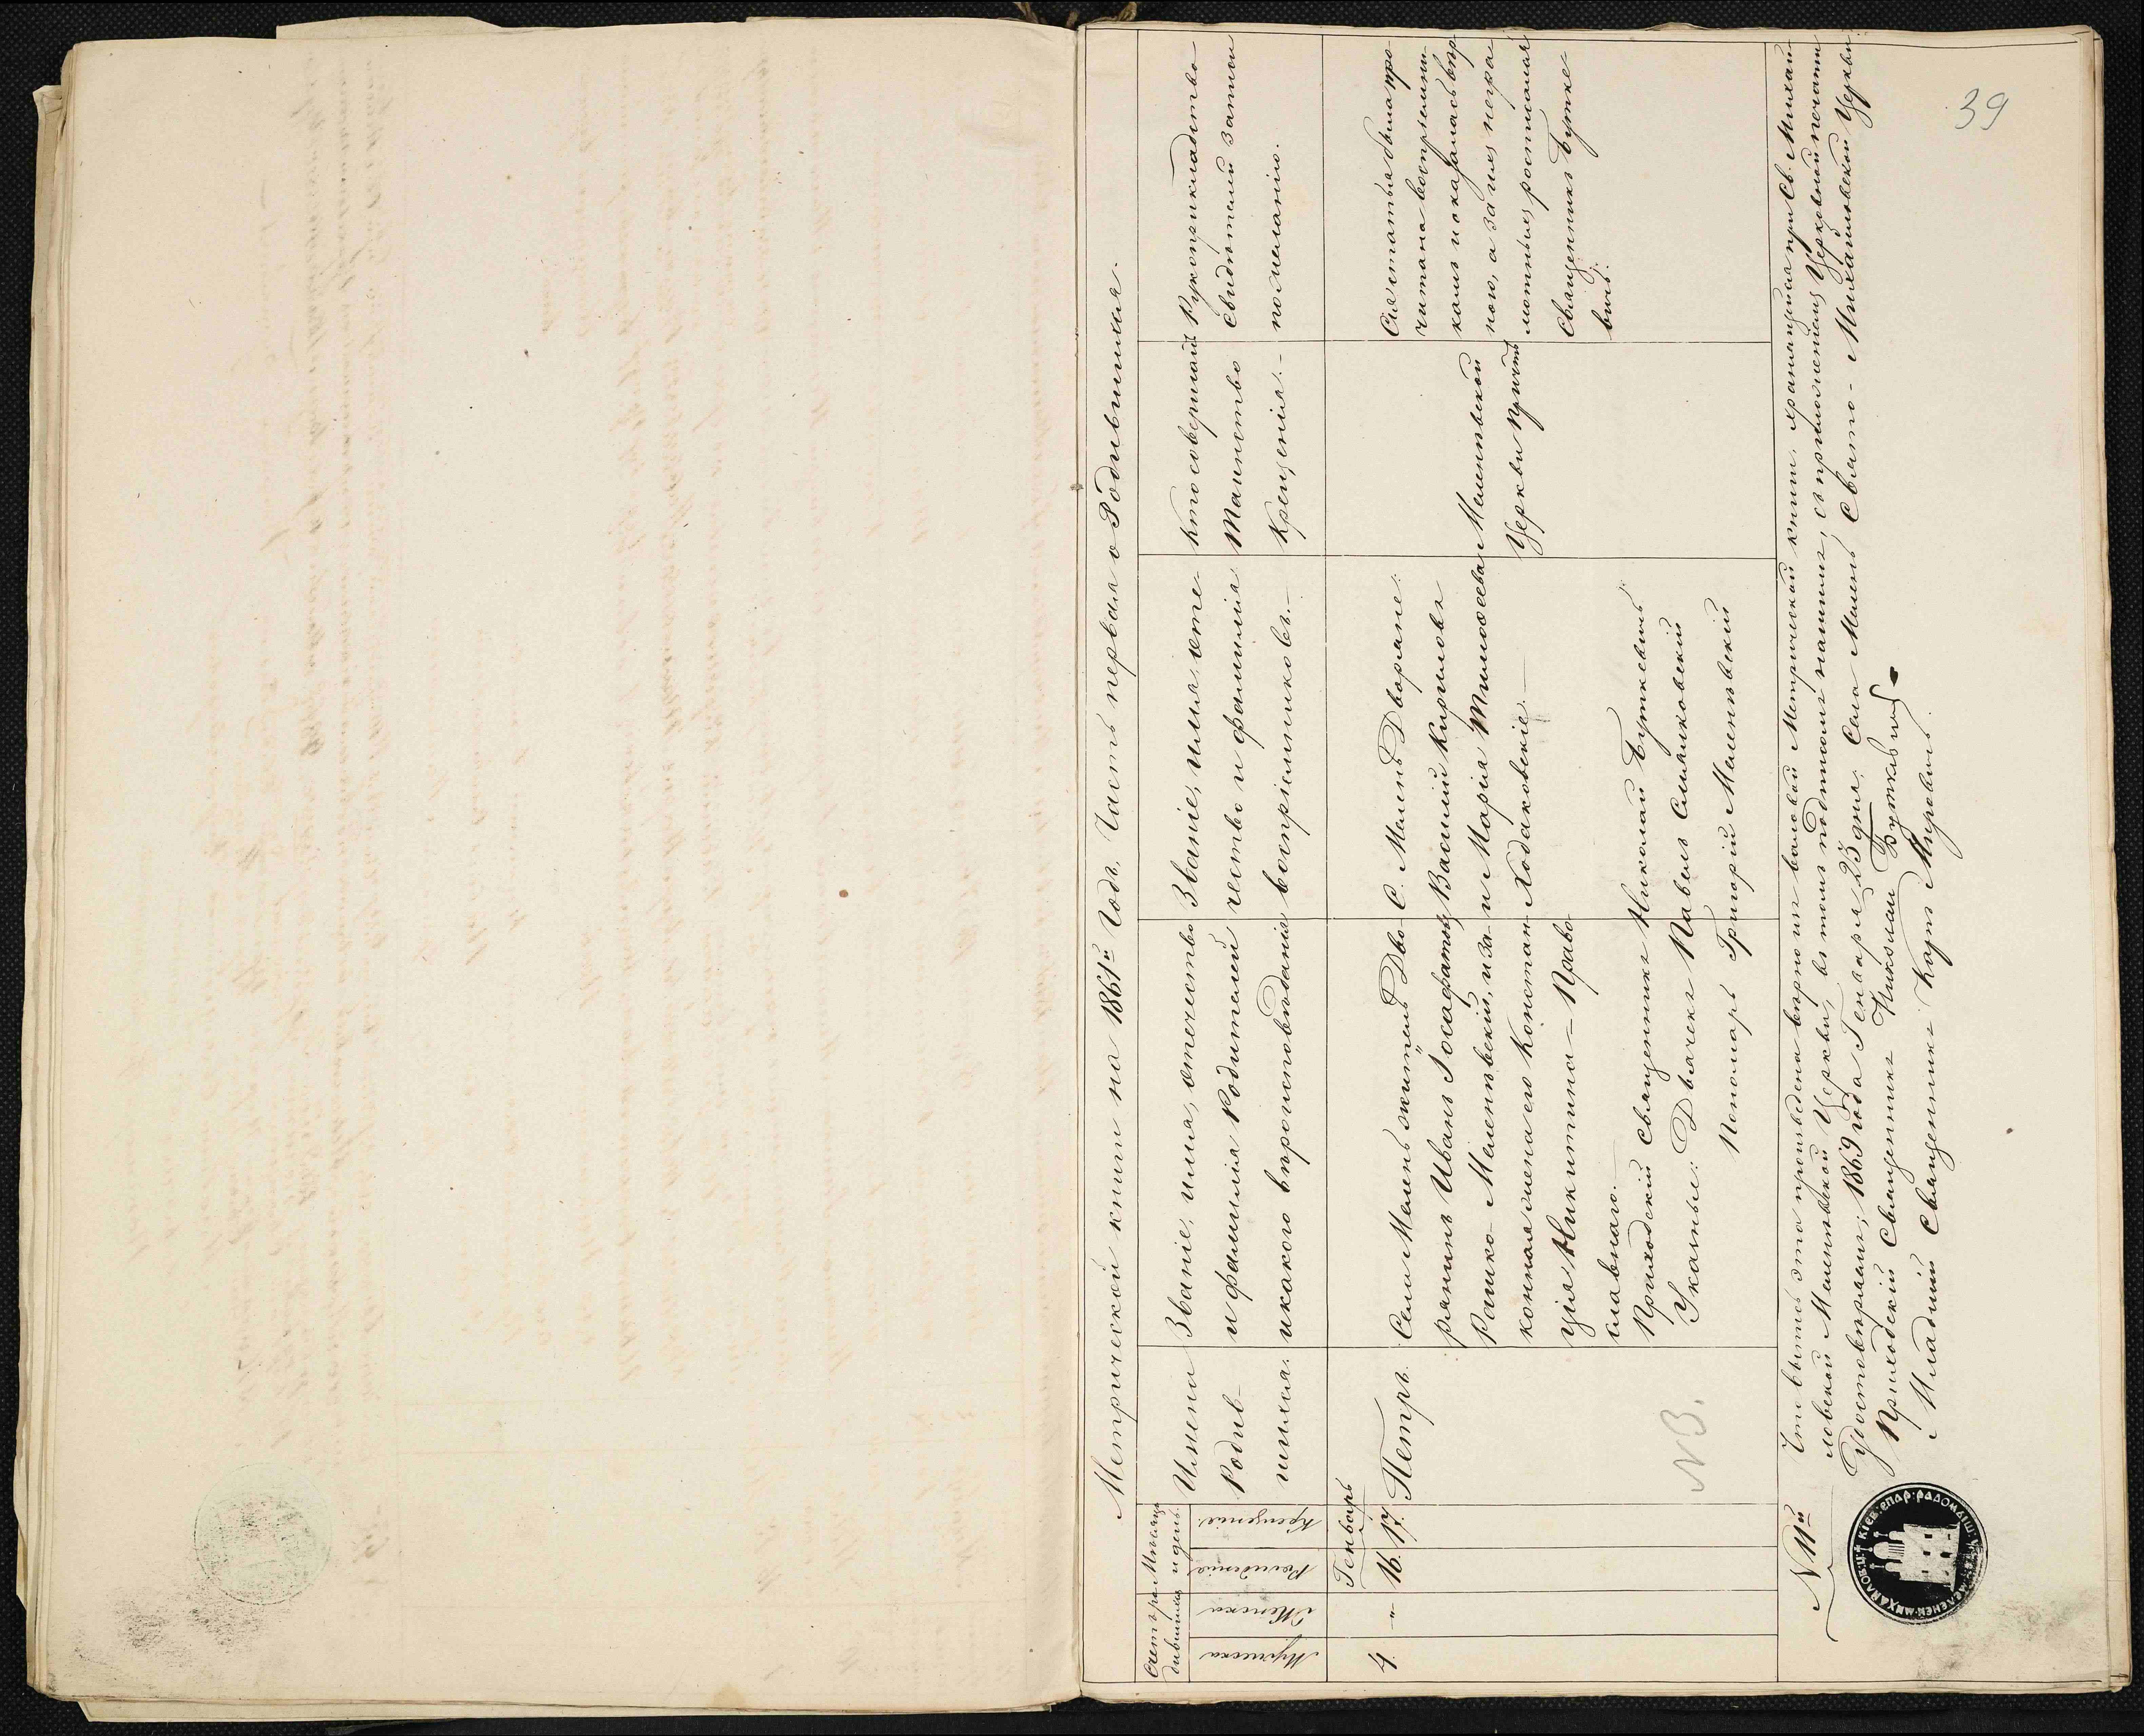 39
Метрической книги на 1861й Годъ, Часть первая о Родившихся.
Счетъ ро-
дившихся
Мужеска
Женска
Мѣсяцъ
и день.
Рожденіе
Крещеніе.
Имена
Родив-
шихся.
Званіе, имя, отечество
и фамилія Родителей
и какого вѣроисповѣданія
Званіе, имя, оте-
чество и фамилія
воспріемниковъ.—
Кто совершалъ
Таинство
Крещенія.—
Рукоприкладство
свидѣтелей записи
по желанію.
Генварь
4.
"
16.
17.
Петръ.
Села Меленъ житель Дво-
рянинъ Иванъ Іосафатовъ
Рашко-Меленѣвскій, и за-
конная жена его Констан-
ція Никитина — Право-
славнаго.—
С. Меленъ Дворяне:
Василій Кириловъ
и Марія Тимофеева
Ходаковскіе.—
Меленѣвской
Церкви Причтъ
Сія статья была про-
читана воспріемни-
камъ и оказалась вѣр-
ною, а за ихъ негра-
мотныхъ росписался
Священникъ Бутке-
вичъ.
Приходскій Священникъ Николай Буткевичъ
Указные: Дьячекъ Павелъ Симяковскій
Пономарь Григорій Меленѣвскій
NB.
N 11й
Что выпись эта произведена вѣрно изъ валовой Метрической книги, хранящейся при Св. Михай-
ловской Меленѣвской Церкви, въ томъ подписомъ нашимъ, съ приложеніемъ Церковной печати
Удостовѣряемъ; 1869 года Генваря 23 дня. Села Меленъ Свято-Михайловской Церкви:
Приходскій Священникъ Николай Буткевичъ
Младшій Священникъ Карпъ Мировичъ.
КІЕВ: ЕПАР: РАДОМЫШ: У: С: МЕЛЕНЕЙ: МИХАЙЛОВ: Ц: